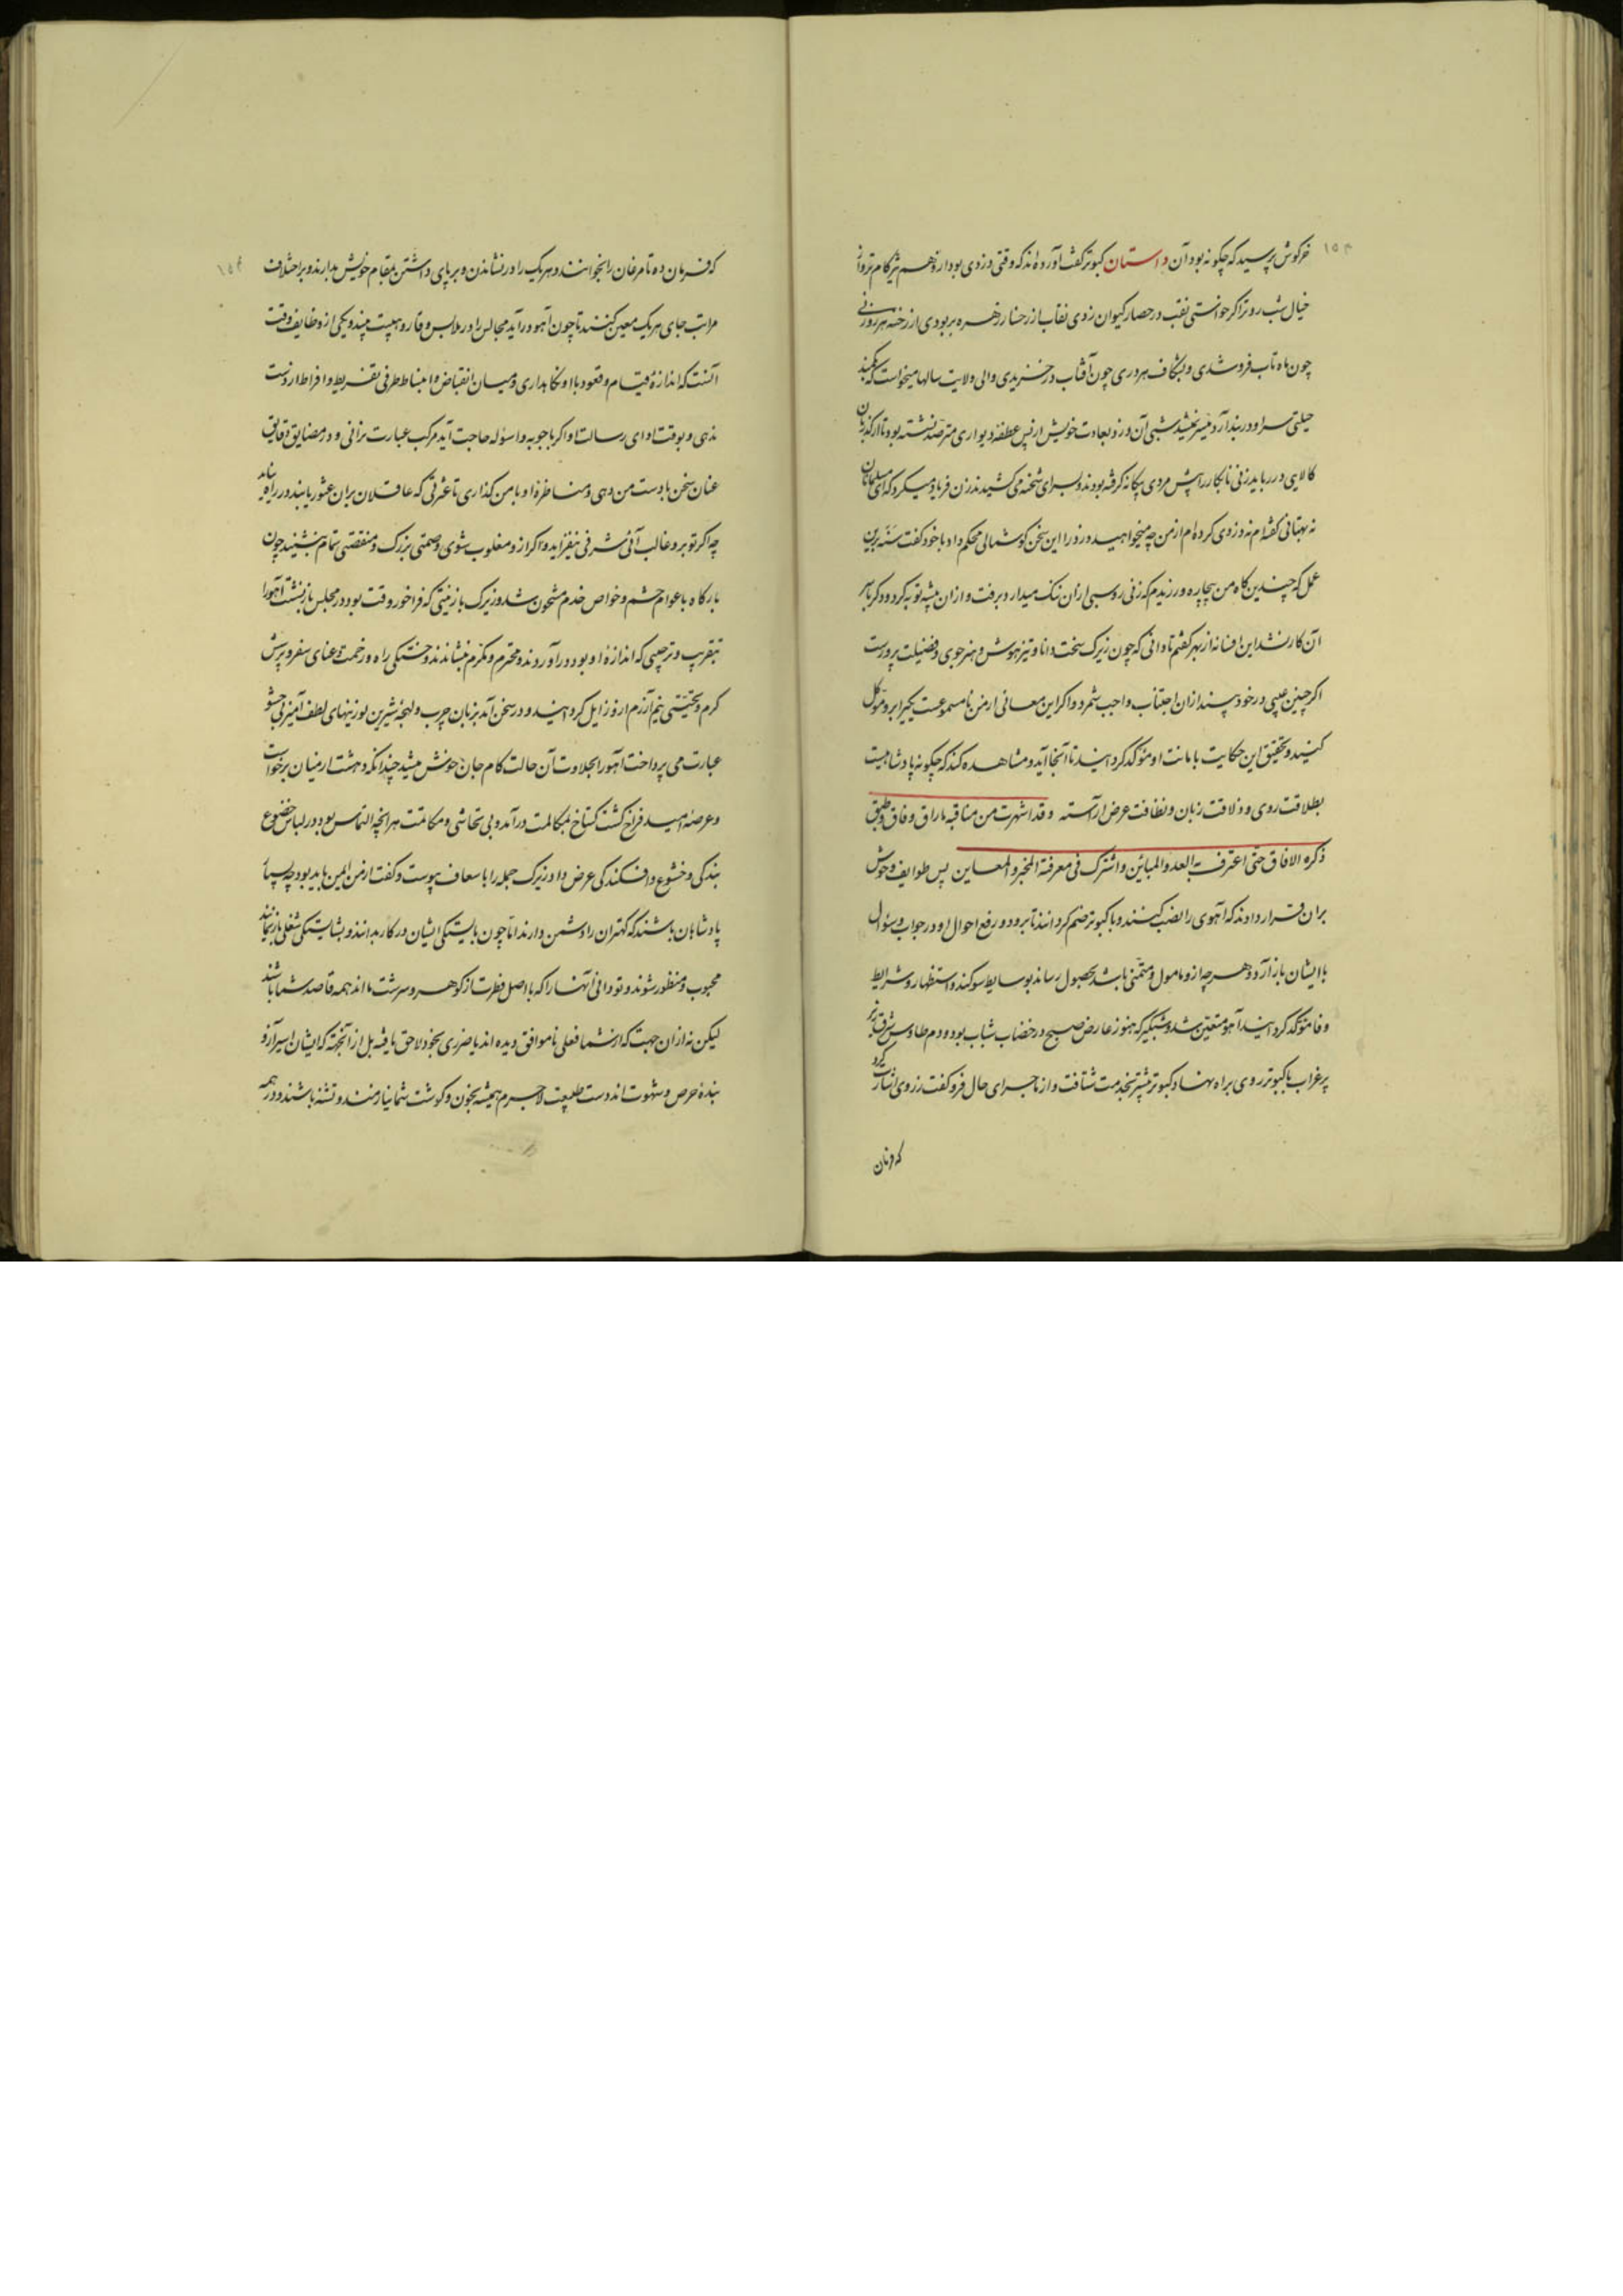 ۱۵۳
خرگوش پرسید که چگونه بود آن داستان کبوتر گفت آورده‌اند که وقتی دزدی بود از وهم تیزگام‌تر و از
خیال شب‌روتر اگر خواستی نقب در حصار کیوان زدی نقاب از رخسار زهره بربودی از رخنه هر روزنی
چون ماه تاب فرو شدی و بشکاف هر دری چون آفتاب در خزیدی والی ولایت سالها میخواست که بکمند
حیلتی سر او در بند آرد میسر نمیشد شبی آن دزد بعادت خویش از پس عطفه دیواری مترصد نشسته بود تا از گذریان
کالایی در رباید زنی نابکار را پیش مردی بیگانه گرفته بودند و بسرای شحنه می‌کشیدند زن فریاد میکرد که ای مسلمانان
نه بهتانی گفته‌ام نه دزدی کرده‌ام از من چه میخواهید دزد را این سخن گوشمالی محکم داد با خود گفت بر این
عمل که چندین گاه من بیچاره ورزیدم که زنی روسبی از آن ننگ میدارد برفت و از آن پیشه توبه کرد و دگر با سر
آن کار نشد این افسانه از بهر آن گفتم تا دانی که چون زیرک سخت دانا و تیزهوش و هنرجوی و فضیلت پرورست
اگر چنین عیبی در خود بیند از آن اجتناب واجب شمرد و اگر این معانی از من نامسموعست یکی را برو موکل
کنید و تحقیق این حکایت بامانت او موکد گردانید تا آنجا آید و مشاهده کند که چگونه پادشاهیست
بطلاقت روی و ذلاقت زبان و نظافت عرض آراسته وقد اشتهرت من مناقبه ما راق و فاق و طبق
ذکره الآفاق حتی اعترف به العدو المباین واشترک فی معرفته المخبر والمعاین پس طوایف وحوش
بر آن قرار دادند که آهوی را نصب کنند و با کبوتر ضم گردانند تا برود و رفع احوال او در جواب و سؤال
با ایشان باز آرد و هرچه ازو مامول و متمنی باشد بحصول رساند بوسایط سوگند و استظهار و شرایط
وفا موکد گردانید آهو متعین شد و شبگیر که هنوز عارض صبیح در خضاب شباب بود و دم طاوس مشرق زیر
پر غراب با کبوتر روی براه نهاد و کبوتر پیشتر بخدمت شتافت و از ماجرای حال فرو گفت زروی اشارت کرد
که فرمان
۱۵۴
که فرمان ده تا مرغان را بخوانند و هریک را در نشاندن و برپای داشتن بمقام خویش بدارند و بر اختلاف
مراتب جای هریک معین کنند تا چون آهو درآید مجالس را در ملابس وقار و هیبت بیند و یکی از وظایف وقت
آنست که اندازه قیام و قعود با او نگاهداری و میان انقباض و انبساط طرفی تفریط و افراط از دست
ندهی و بوقت ادای رسالت او اگر باجوبه و اسؤله حاجت آید مرکب عبارت نرانی و در مضایق دقایق
عنان سخن بادست من دهی و مناظره او با من گذاری تا عثرتی که عاقلان بران عثور یابند در راه نیاید
چه اگر تو برو غالب آئی شرفی نیفزاید و اگر ازو مغلوب شوی وصمتی بزرگ و منقصتی تمام نشیند چون
بارگاه باعوام حشم و خواص خدم مشحون شد و زیرک با زینتی که فراخور وقت بود در مجلس بار نشست آهو را
بتقریب و ترحیبی که اندازه او بود درآوردند و محترم و مکرم بنشاندند و خستگی راه و زحمت و عنای سفر و پرسش
گرم و تحیتی نیم‌آزرم ازو زایل گردانید و در سخن آمد بزبان چرب و لهجه شیرین لوزینهای لطف آمیز بی‌حشو
عبارت می‌پرداخت آهو را بحلاوت آن حالت کام جان خوش میشد چندانکه دهشت از میان برخواست
و عرصه امید فراخ گشت گستاخ بمکالمت درآمد و بی تحاشی و مکاتمت هرآنچه التماس بود در لباس خضوع
بندگی و خشوع و افکندگی عرض داد زیرک جمله را باسعاف پیوست و گفت از من ایمن باید بود چه بسیار
پادشاهان باشند که کهتران را دشمن دارند اما چون بایستگی ایشان در کار بدانند و بشایستگی شغلی باز بینند
محبوب و منظور شوند و تو دانی آنها را که با اصل فطرت از گوهر و سرشت مااند همه قاصد شما باشند
لیکن نه از ان جهت که از شما فعلی ناموافق دیده‌اند یا ضرری بخود لاحق یافته بل از آنجهت که ایشان اسیر آز و
بنده حرص و شهوت‌اند دست طبیعت لاجرم همیشه بخون و گوشت شما نیازمند و تشنه باشند و در همه